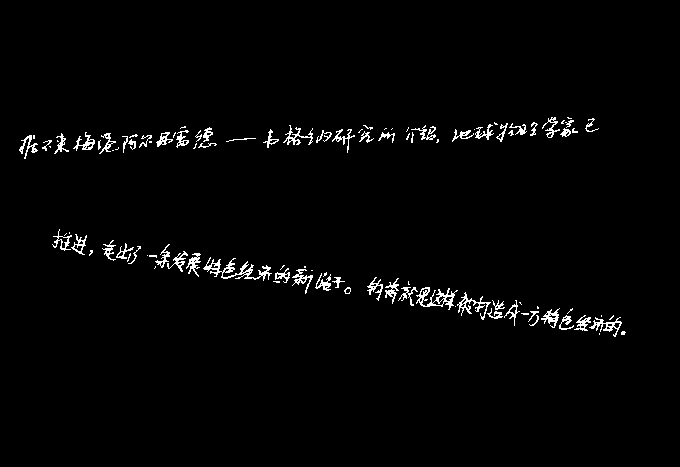 据不来梅港阿尔弗雷德——韦格纳研究所介绍,地球物理学家已
推进,走出了一条发展特色经济的新路子。钧荷就是这样被打造成一方特色经济的。